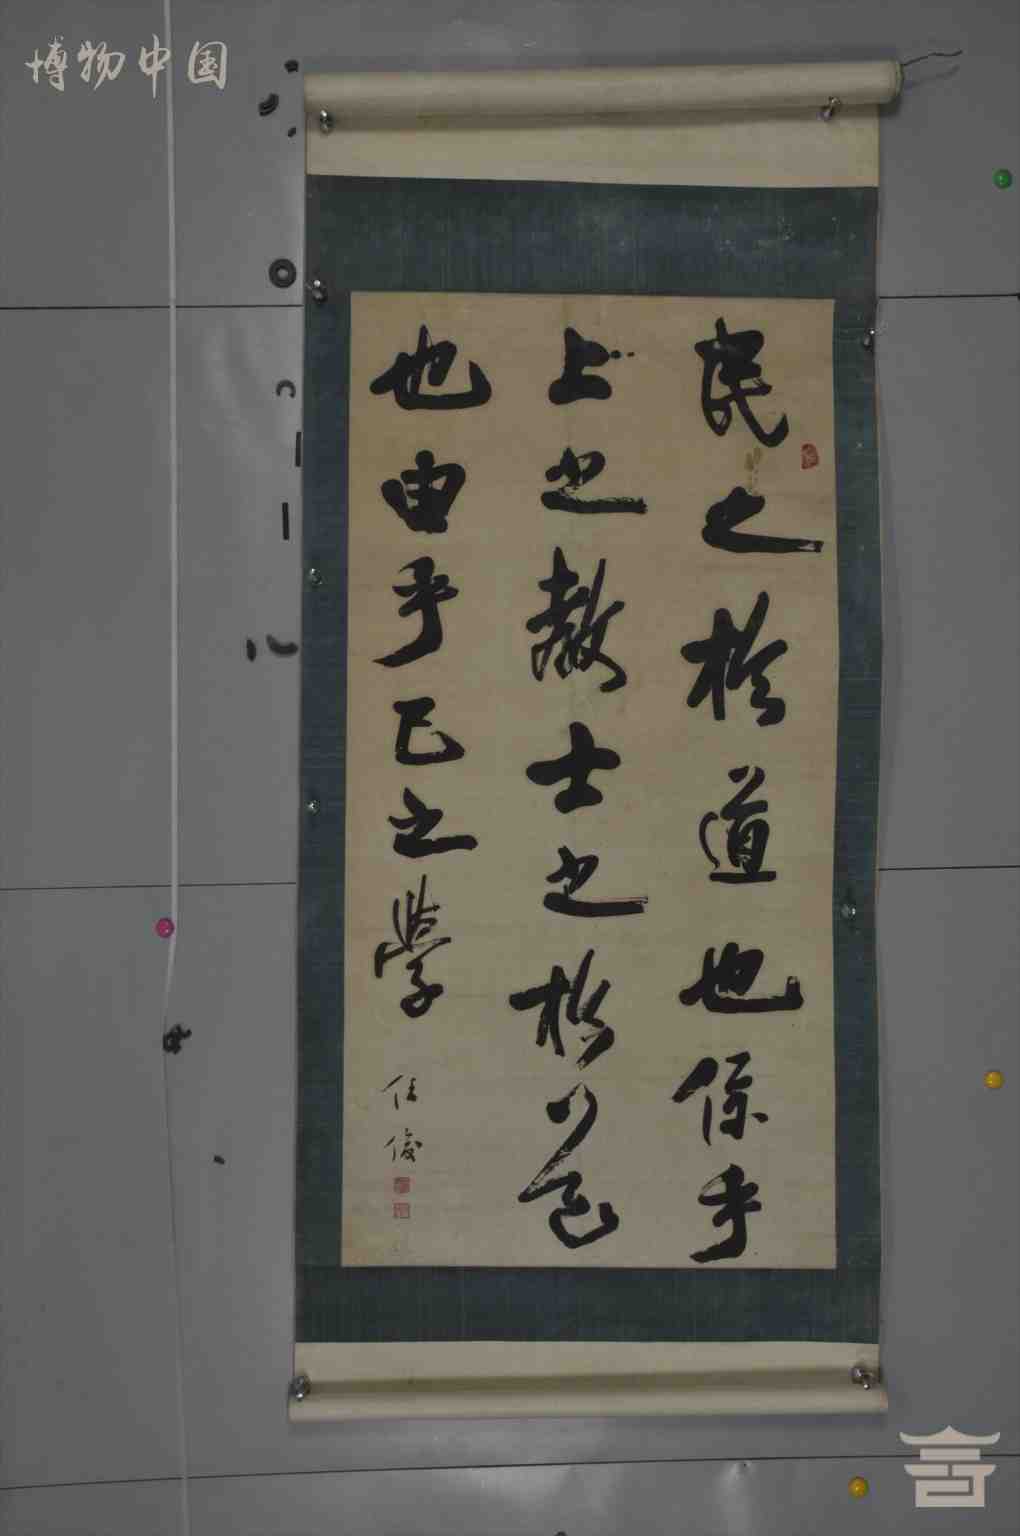 博物中国
民之於道也係乎
上之教士之於道
也由乎己之學
任俊